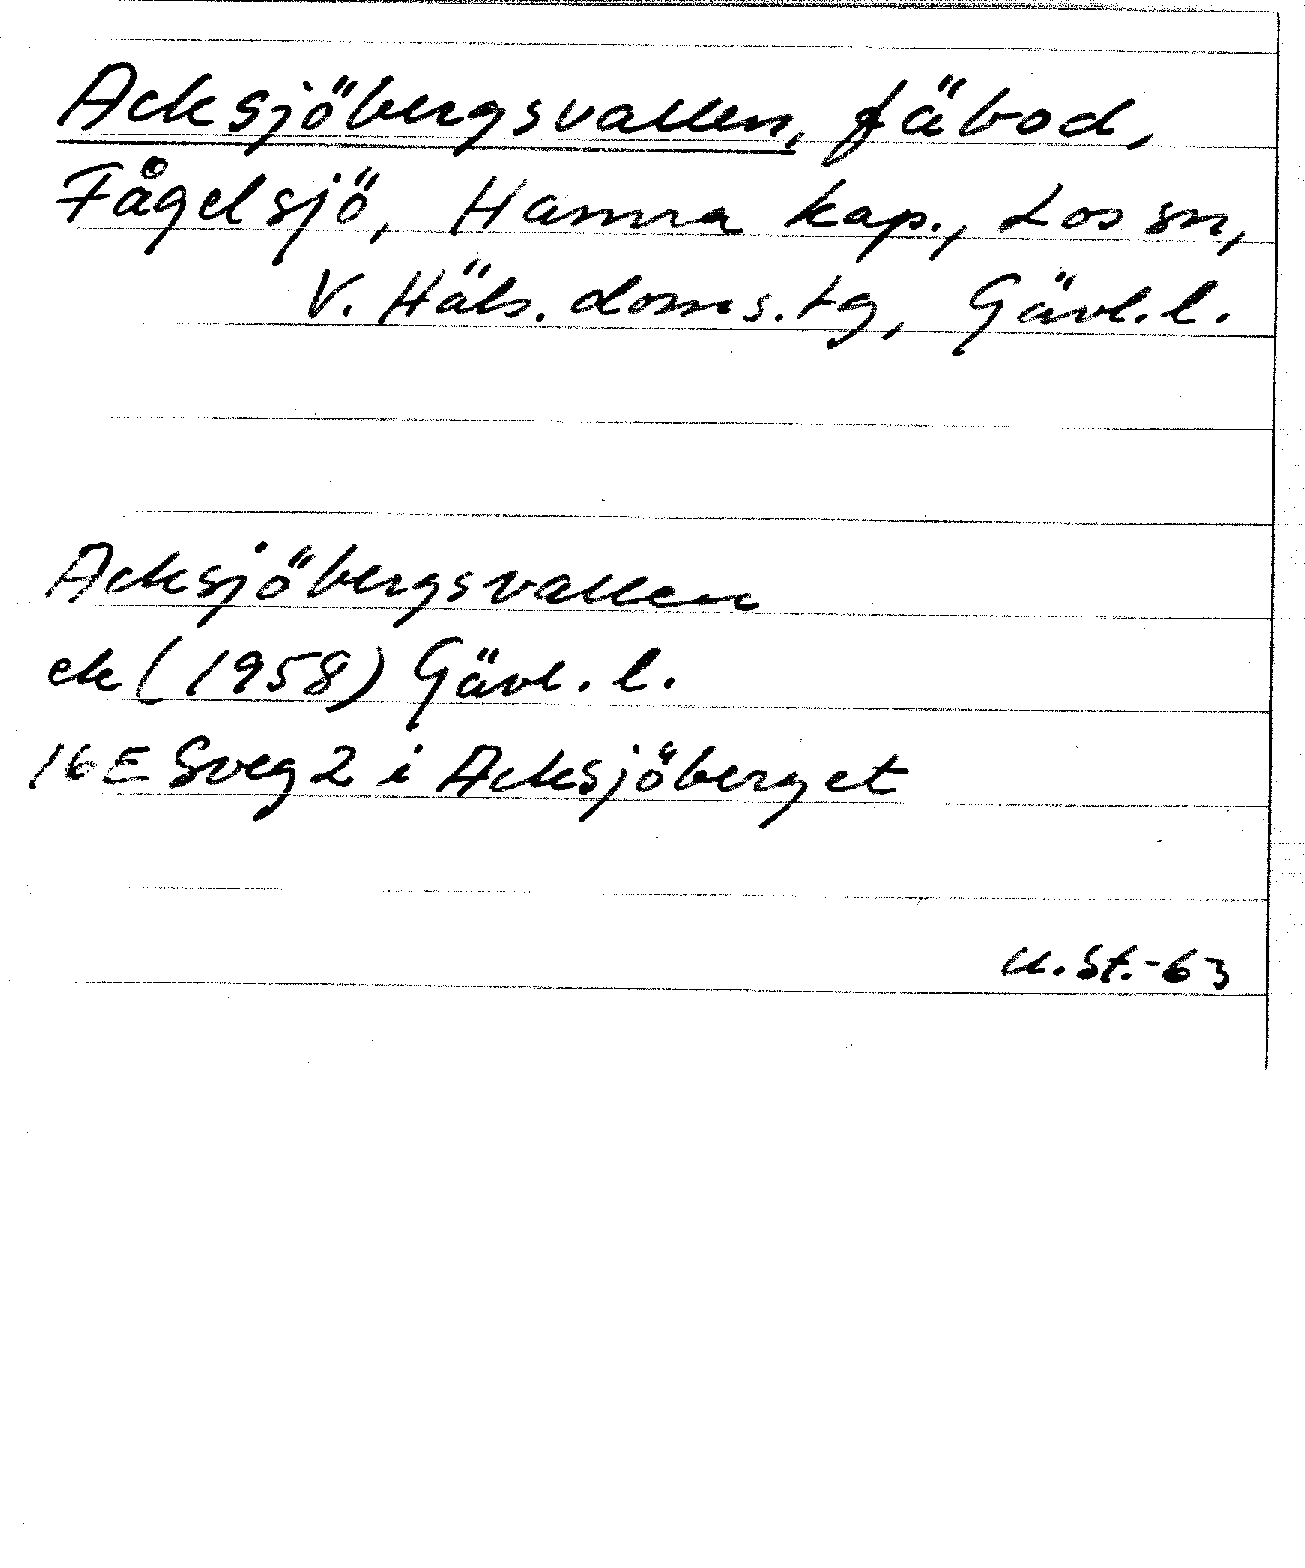 Acksjöbergsvallen, fäbod,
Fågelsjö, Hamra kap., Los sn,
V. Häls. doms. tg, Gävl. l.
Acksjöbergsvallen
ek (1958) Gävl. l.
16 E Sveg 2 i Acksjöberget
U. St. -63